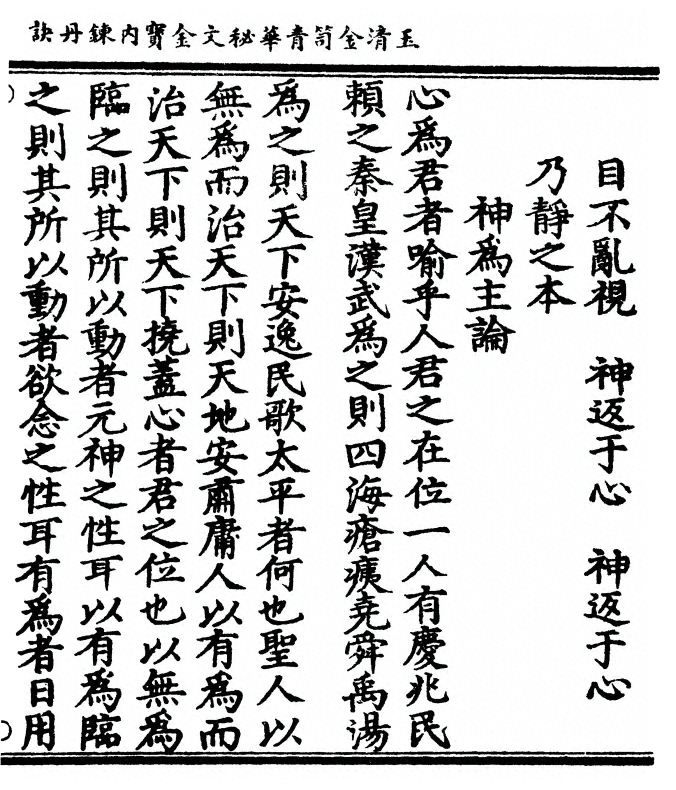 玉清金笥青華秘文金寶內鍊丹訣
目不亂視　神返于心　神返于心
乃靜之本
神爲主論
心爲君者喻乎人君之在位一人有慶兆民
賴之秦皇漢武爲之則四海瘡痍堯舜禹湯
爲之則天下安逸民歌太平者何也聖人以
無爲而治天下則天地安肅庸人以有爲而
治天下則天下撓蓋心者君之位也以無爲
臨之則其所以動者元神之性耳以有爲臨
之則其所以動者欲念之性耳有爲者日用